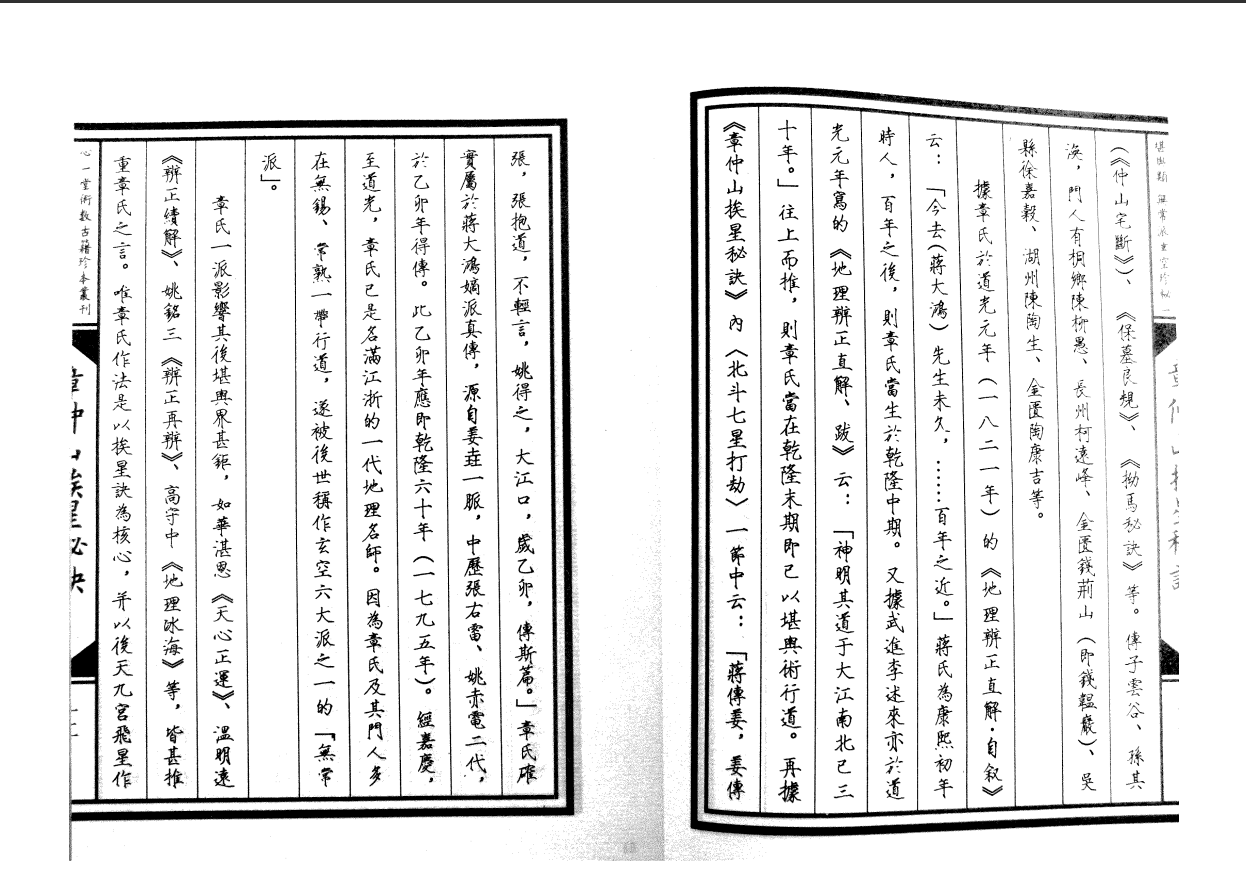 (《仲山宅斷》)、《保墓良規》、《拗馬秘訣》等。傳子雲谷、孫其
渙,門人有桐鄉陳柳愚、長州柯遠峰、金匱錢荊山(即錢韞巖)、吳
縣徐嘉穀、湖州陳陶生、金匱陶康吉等。
據章氏於道光元年(一八二一年)的《地理辨正直解·自叙》
云:「今去(蔣大鴻)先生未久,……百年之近。」蔣氏為康熙初年
時人,百年之後,則章氏當生於乾隆中期。又據武進李述來亦於道
光元年寫的《地理辨正直解、跋》云:「神明其道于大江南北已三
十年。」往上而推,則章氏當在乾隆末期即已以堪輿術行道。再據
《章仲山挨星秘訣》內〈北斗七星打劫〉一節中云:「蔣傳姜,姜傳
張,張抱道,不輕言,姚得之,大江口,歲乙卯,傳斯篇。」章氏確
實屬於蔣大鴻嫡派真傳,源自姜垚一脈,中歷張右雷、姚赤電二代,
於乙卯年得傳。此乙卯年應即乾隆六十年(一七九五年)。經嘉慶,
至道光,章氏已是名滿江浙的一代地理名師。因為章氏及其門人多
在無錫、常熟一帶行道,遂被後世稱作玄空六大派之一的「無常
派」。
章氏一派影響其後堪輿界甚鉅,如華湛恩《天心正運》、溫明遠
《辨正續解》、姚銘三《辨正再辨》、高守中《地理冰海》等,皆甚推
重章氏之言。唯章氏作法是以挨星訣為核心,并以後天九宮飛星作
心一堂術數古籍珍本叢刊
章仲山挨星秘訣